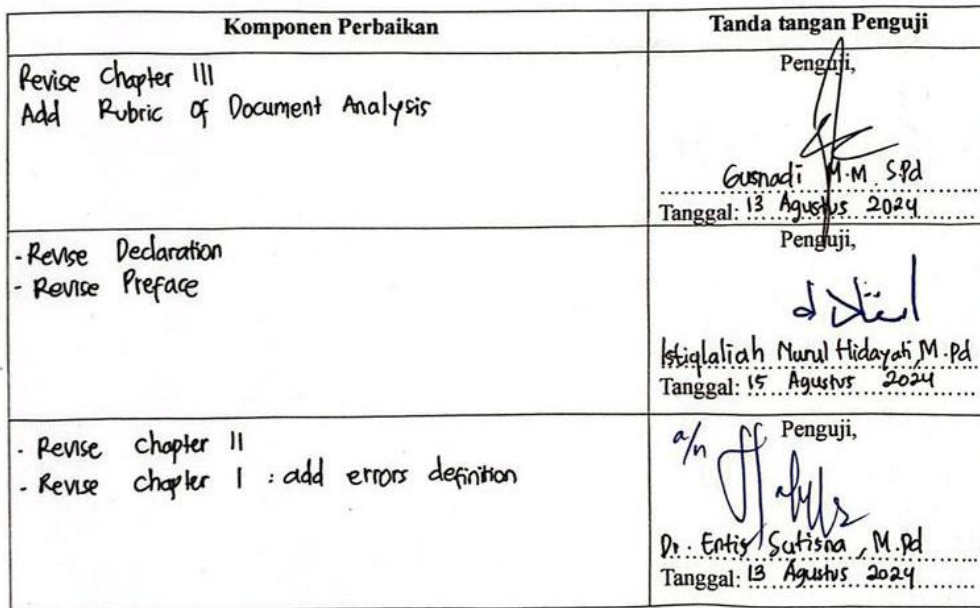 Komponen Perbaikan
Tanda tangan Penguji
Revise Chapter III
Add Rubric of Document Analysis
Penguji,
Gusnadi M.M. S.Pd
Tanggal: 13 Agustus 2024
- Revise Declaration
- Revise Preface
Penguji,
Istiqlaliah Nurul Hidayati, M.Pd
Tanggal: 15 Agustus 2024
- Revise chapter II
- Revise chapter I : add errors definition
a/n Penguji,
Dr. Entis Sutisna, M.Pd
Tanggal: 13 Agustus 2024